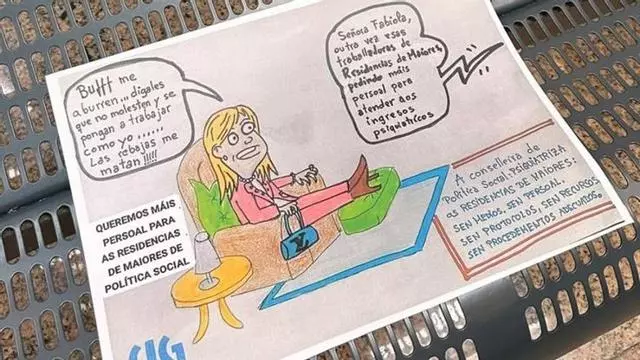 Bufff me
aburren... dígales
que no molesten y se
pongan a trabajar
como yo......
Las rebajas me
matan!!!!!
Señora Fabiola,
outra vez esas
traballadoras de
Residencias de Maiores,
pedindo máis
persoal para
atender aos
ingresos
psiquiatricos
QUEREMOS MÁIS
PERSOAL PARA
AS RESIDENCIAS
DE MAIORES DE
POLÍTICA SOCIAL
A conselleira de
Política Social, PSIQUIATRIZA
as RESIDENCIAS DE MAIORES:
SEN MEDIOS, SEN PERSOAL,
SEN PROTOCOLOS, SEN RECURSOS
SEN PROCEDEMENTOS ADECUADOS.
CIG